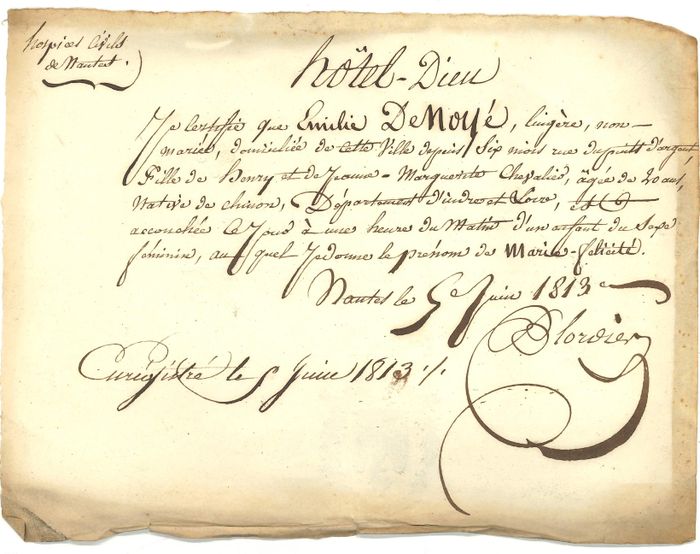 hospices Civils
de Nantes.
hôtel-Dieu
Je Certifie que Emilie DeNoyé, lingère, non-
mariée, domiciliée de cette Ville depuis Six mois rue dupuits d'argent,
Fille de henry et de Jeanne-Marguerite Chevalier, âgée de 20 ans,
Native de chinon, Département d'indre et Loire,
accouchée Ce Jour à une heure du Matin d'un enfant du Sexe
féminin, au quel Je donne le prénom de Marie-félicité.
Nantes le 5e Juin 1813
Enrégistré le 5 Juin 1813 ./.